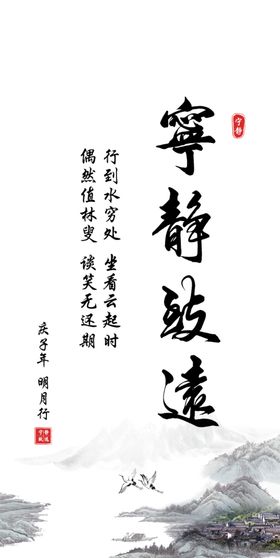 宁静
寧静致遠
行到水穷处 坐看云起时
偶然值林叟 谈笑无还期
庚子年 明月行